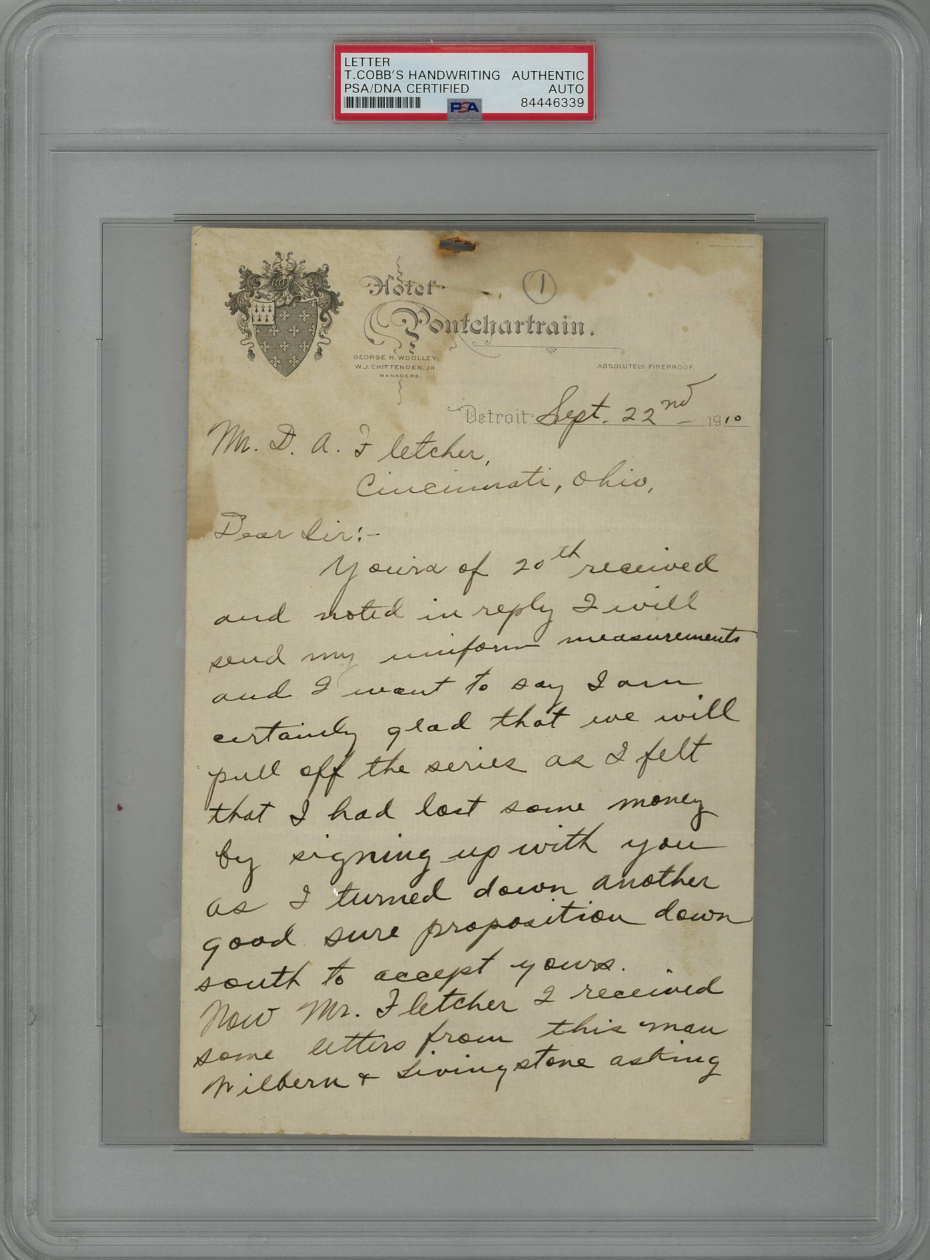 LETTER
T.COBB'S HANDWRITING AUTHENTIC
PSA/DNA CERTIFIED AUTO
PSA 84446339
1
Hotel
Pontchartrain.
GEORGE H. WOOLLEY,
W.J. CHITTENDEN, JR
MANAGERS.
ABSOLUTELY FIREPROOF
Detroit Sept. 22nd 1910
Mr. D. A. Fletcher,
Cincinnati, Ohio,
Dear Sir:-
Yours of 20th received
and noted in reply I will
send my uniform measurements
and I want to say I am
certainly glad that we will
pull off the series as I felt
that I had lost some money
by signing up with you
as I turned down another
good sure proposition down
south to accept yours.
Now Mr. Fletcher I received
some letters from this man
Wilbern + Livingstone asking